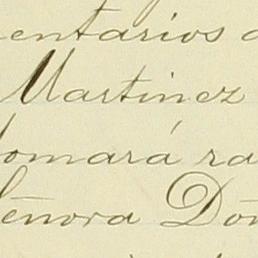 entarios
Martinez
tomará ra
Señora Don